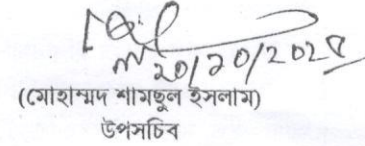 ২০/১০/২০২৫
(মোহাম্মদ শামছুল ইসলাম)
উপসচিব